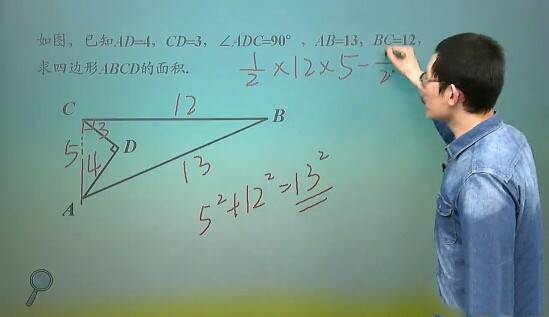 如图，已知AD=4，CD=3，∠ADC=90°，AB=13，BC=12，
求四边形ABCD的面积.
1/2 × 12 × 5 - 1/2
C
12
B
3
D
5
4
13
A
5² + 12² = 13²